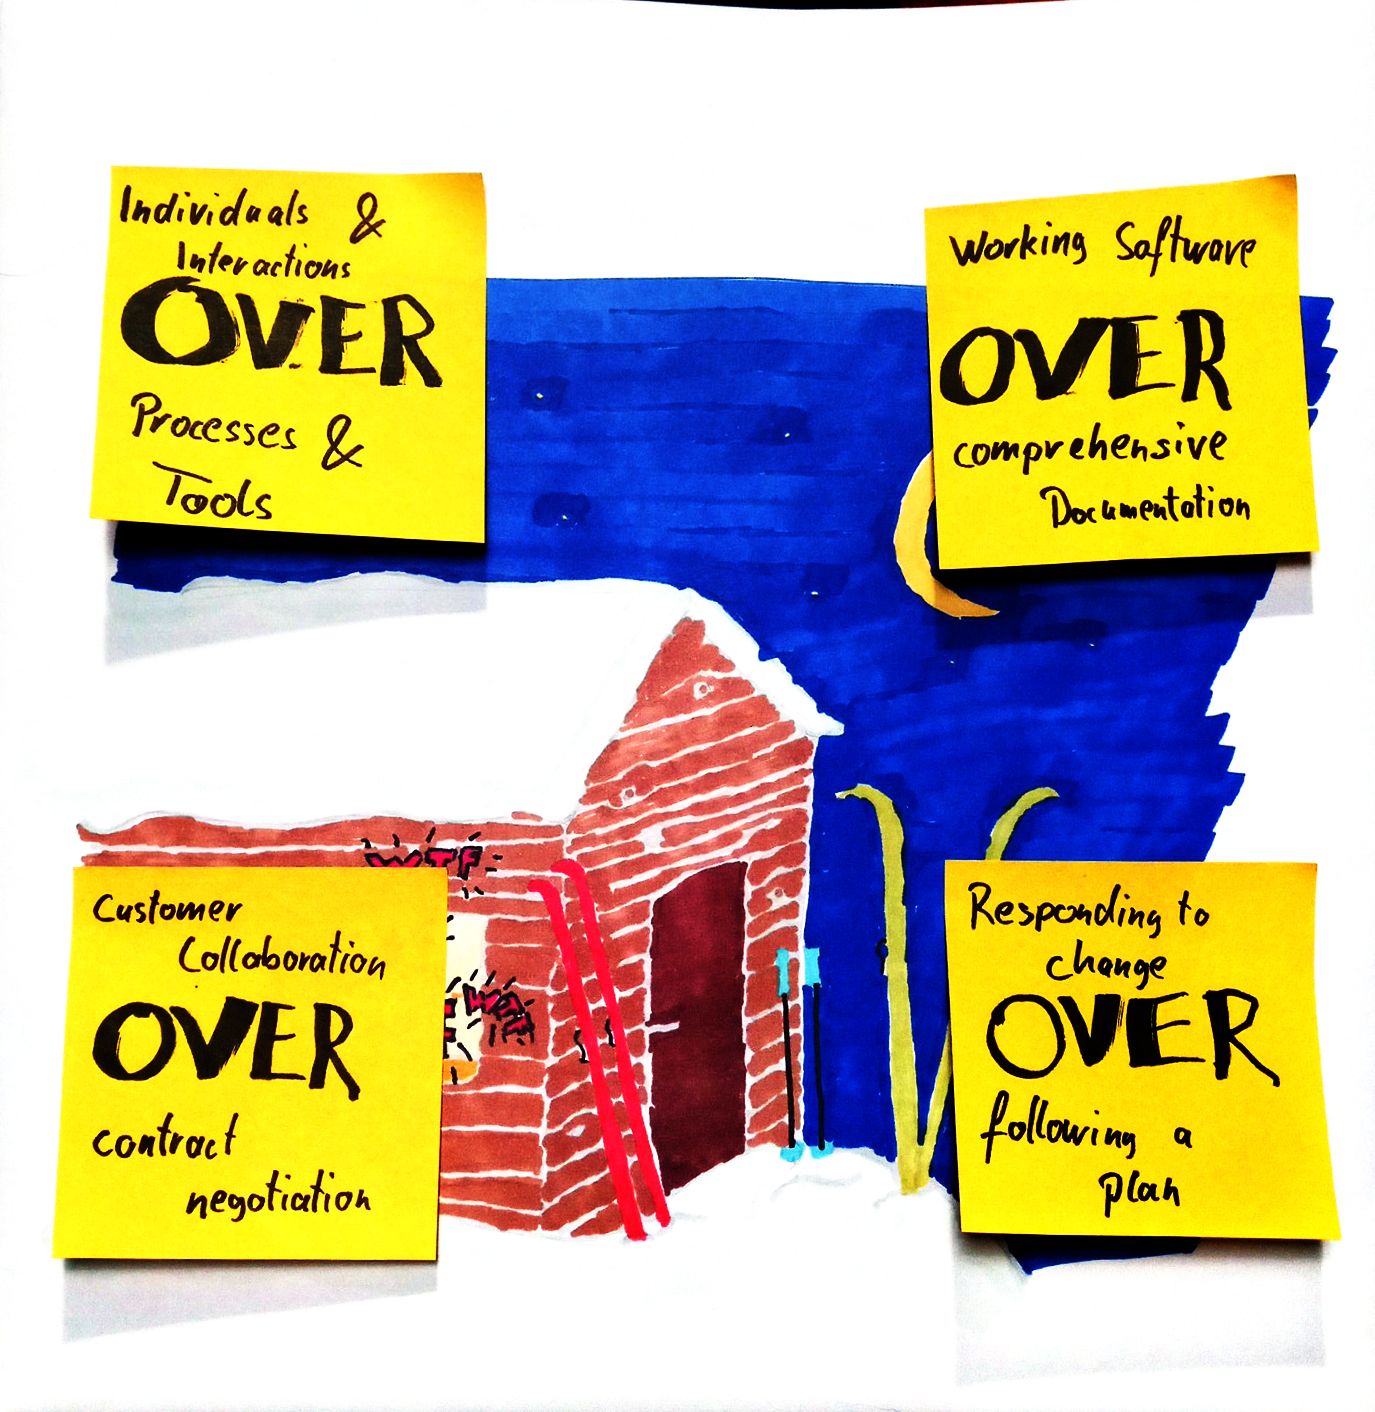 Individuals &
Interactions
OVER
Processes &
Tools
Working Software
OVER
comprehensive
Documentation
WTF
Customer
Collaboration
OVER
contract
negotiation
Responding to
change
OVER
following a
plan